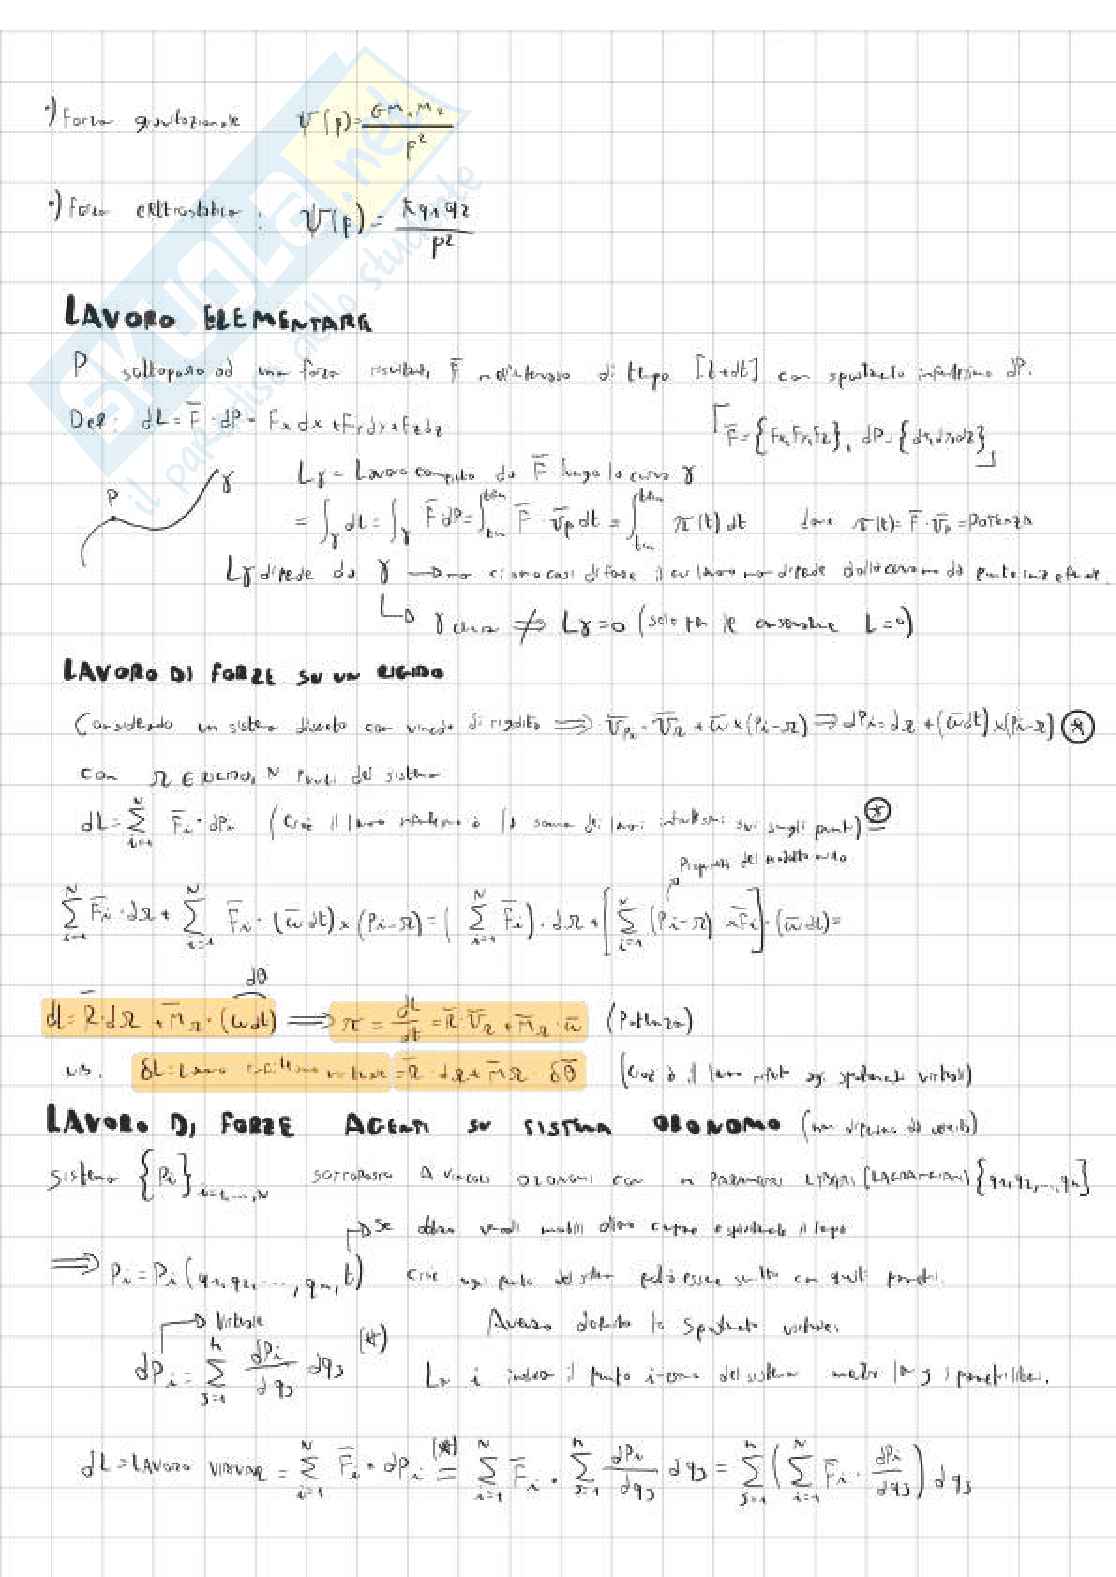 •) Forza gravitazionale ψ(ρ) = GM₁M₂ / ρ²
•) Forza elettrostatica : ψ(ρ) = k q₁ q₂ / ρ²
LAVORO ELEMENTARE
P sottoposto ad una forza risultante F̄ nell'intervallo di tempo [t+dt] con spostamento infinitesimo dP.
Def: dL = F̄ · dP = Fx dx + Fy dy + Fz dz
F̄ = {Fx, Fy, Fz}, dP = {dx, dy, dz}
P γ Lγ = Lavoro compiuto da F̄ lungo la curva γ
= ∫γ dL = ∫γ F̄ dP = ∫ F̄ · v̄p dt = ∫ π(t) dt dove π(t) = F̄ · v̄p = POTENZA
Lγ dipende da γ → ma ci sono casi di forze il cui lavoro non dipende dalla curva ma da punto iniz e finale.
↳ γ chiusa ⇏ Lγ = 0 (solo per le conservative L=0)
LAVORO DI FORZE SU UN RIGIDO
Considerando un sistema discreto con vincolo di rigidità ⇒ v̄Pi = v̄Ω + ω̄ × (Pi-Ω) ⇒ dPi = dΩ + (ω̄dt) × (Pi-Ω) (*)
con Ω ∈ RIGIDO, N Punti del sistema
dL = Σ(i=1..N) F̄i · dPi (Cioè il lavoro infinitesimo è la somma dei lavori infinitesimi sui singoli punti) (*)
Proprietà del prodotto misto
Σ(i=1..N) F̄i · dΩ + Σ(i=1..N) F̄i · (ω̄dt) × (Pi-Ω) = (Σ(i=1..N) F̄i) · dΩ + [Σ(i=1..N) (Pi-Ω) × F̄i] · (ω̄dt) =
dθ
dL = R̄ · dΩ + M̄Ω · (ωdt) ⇒ π = dL/dt = R̄ · v̄Ω + M̄Ω · ω̄ (Potenza)
vs. δL = Lavoro infinitesimo virtuale = R̄ · dΩ + M̄Ω · δθ̄ (Cioè è il lavoro spostamento virtuale)
LAVORO DI FORZE AGENTI SU SISTEMA OLONOMO
sistema {Pi} i=1,...,N SOTTOPOSTO A VINCOLI OLONOMI CON n PARAMETRI LIBERI (LAGRANGIANI) {q1, q2, ..., qn}
Se abbiamo vincoli mobili devo esplicitamente il tempo
⇒ Pi = Pi(q1, q2, ..., qn, t) Cioè ogni punto del sistema può essere scritto con questi parametri.
Virtuale Avevamo definito lo spostamento virtuale.
dPi = Σ(j=1..n) dPi/dqj dqj (**) ↳ i indica il punto i-esimo del sistema mentre la j i parametri liberi.
dL = LAVORO VIRTUALE = Σ(i=1..N) F̄i · dPi (**)= Σ(i=1..N) F̄i · Σ(j=1..n) dPi/dqj dqj = Σ(j=1..n) (Σ(i=1..N) F̄i · dPi/dqj) dqj
SKUOLA.net
il paradiso dello studente